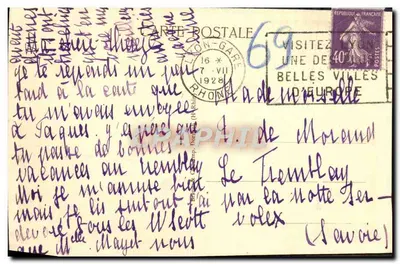 CARTE POSTALE
LYON-GARE
16 *
7 - VII
1928
RHONE
VISITEZ
UNE DE
BELLES VILLES
D'EUROPE
REPUBLIQUE FRANCAISE
40
POSTES
69
chère
je te réponds un peu
tard à la carte que
tu m'avais envoyée
à Pâques j'espère que
tu passe de bonnes
vacances au Tremblay
Moi je m'amuse bien
mais je lis surtout j'ai
dévoré tous les W Scott
que Melle Mayet nous
Mademoiselle
de Morand
Le Tremblay
par la Motte Ser-
volex
(Savoie)